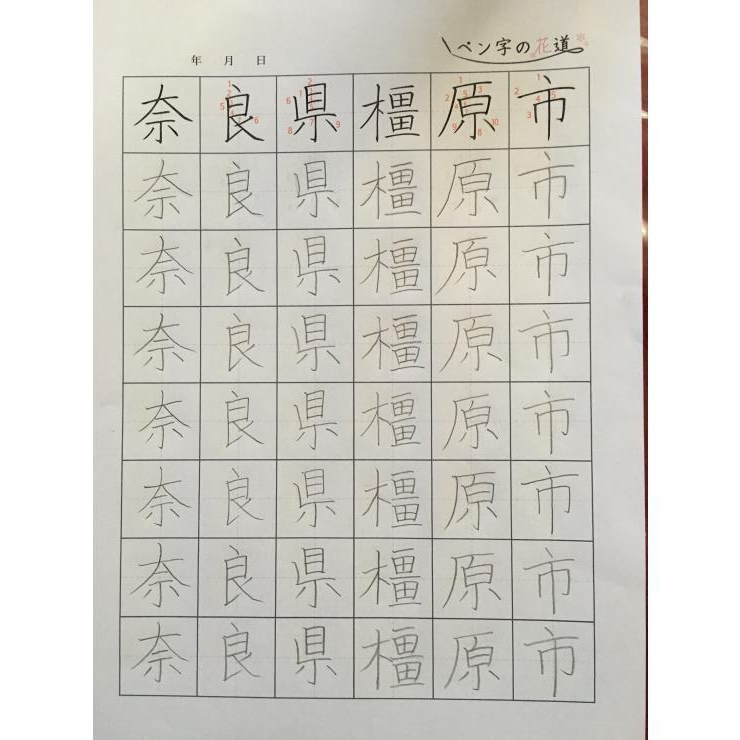 年 月 日
ペン字の花道
奈良県橿原市
奈良県橿原市
奈良県橿原市
奈良県橿原市
奈良県橿原市
奈良県橿原市
奈良県橿原市
奈良県橿原市